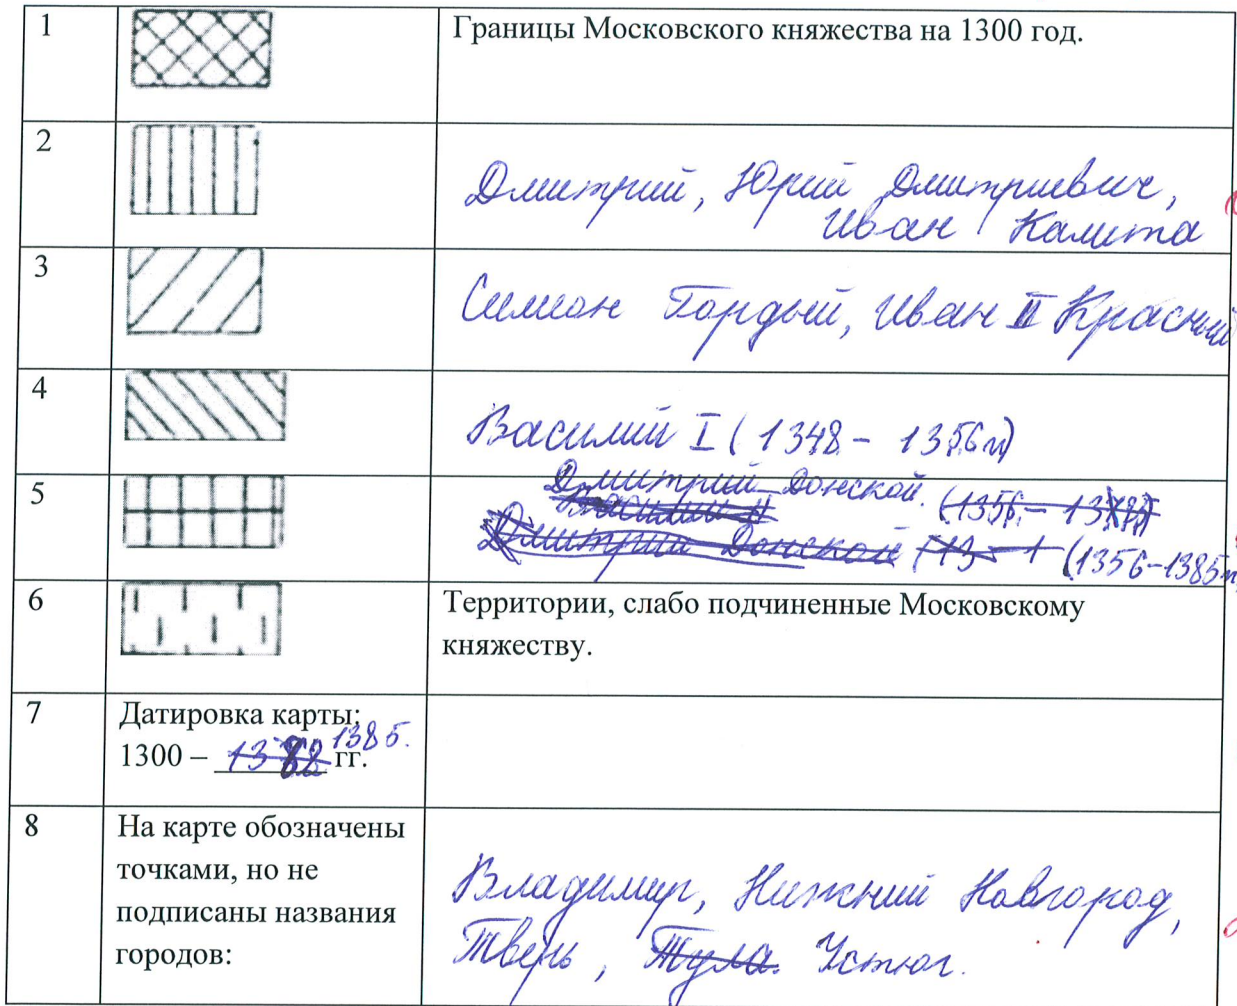 1 Границы Московского княжества на 1300 год.
2
Дмитрий, Юрий Дмитриевич,
Иван Калита
3
Симион Гордый, Иван II Красный
4
Василий I (1348 – 1356 гг)
5 Дмитрий Донской. (1356 –
Василий II
Дмитрий Донской (13 – 1 (1356–1385 гг)
6 Территории, слабо подчиненные Московскому
княжеству.
7 Датировка карты:
1385.
1300 – 1382 гг.
8 На карте обозначены
точками, но не
подписаны названия
городов:
Владимир, Нижний Новгород,
Тверь, Тула. Устюг.